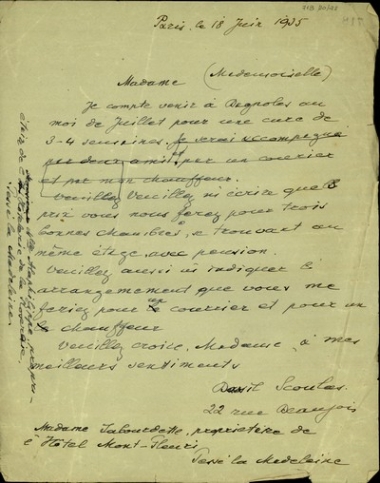 Paris, le 18 Juin 1935
Madame (Mademoiselle)
Je compte venir à Bagnoles au
moi de Juillet pour une cure de
3-4 semaines. Je serai accompagné
par deux amis, par un courier
et par mon chauffeur.
Veuillez Veuillez m'écrire quel
prix vous nous ferez pour trois
bonnes chambres, se trouvant au
même étage, avec pension.
Veuillez aussi m'indiquer l'
arrangement que vous me
feriez pour un courier et pour un
chauffeur
Veuillez croire, Madame, à mes
meilleurs sentiments
Basil Scoulas.
22 rue Beaujois
Madame Tabourdette, propriétaire de
l'Hôtel Mont-Fleuri
Tessé la Madeleine
propri-
étaire de la Roseraie,
Tessé la Madeleine.